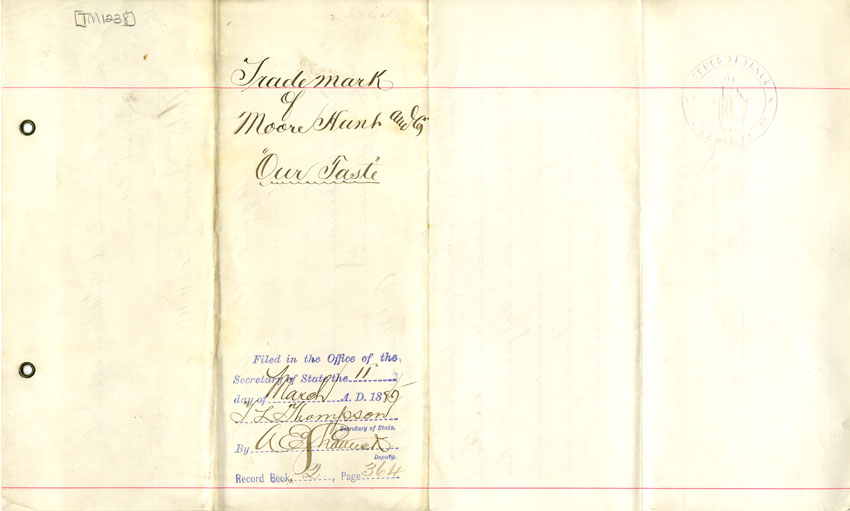 [TM1238]
2-364
Trademark
of
Moore Hunt and Co
"Our Taste"
Filed in the Office of the
Secretary of State the 11
day of March A. D. 1885
T L Thompson
Secretary of State.
By A E Shattuck
Deputy.
Record Book 2, Page 364